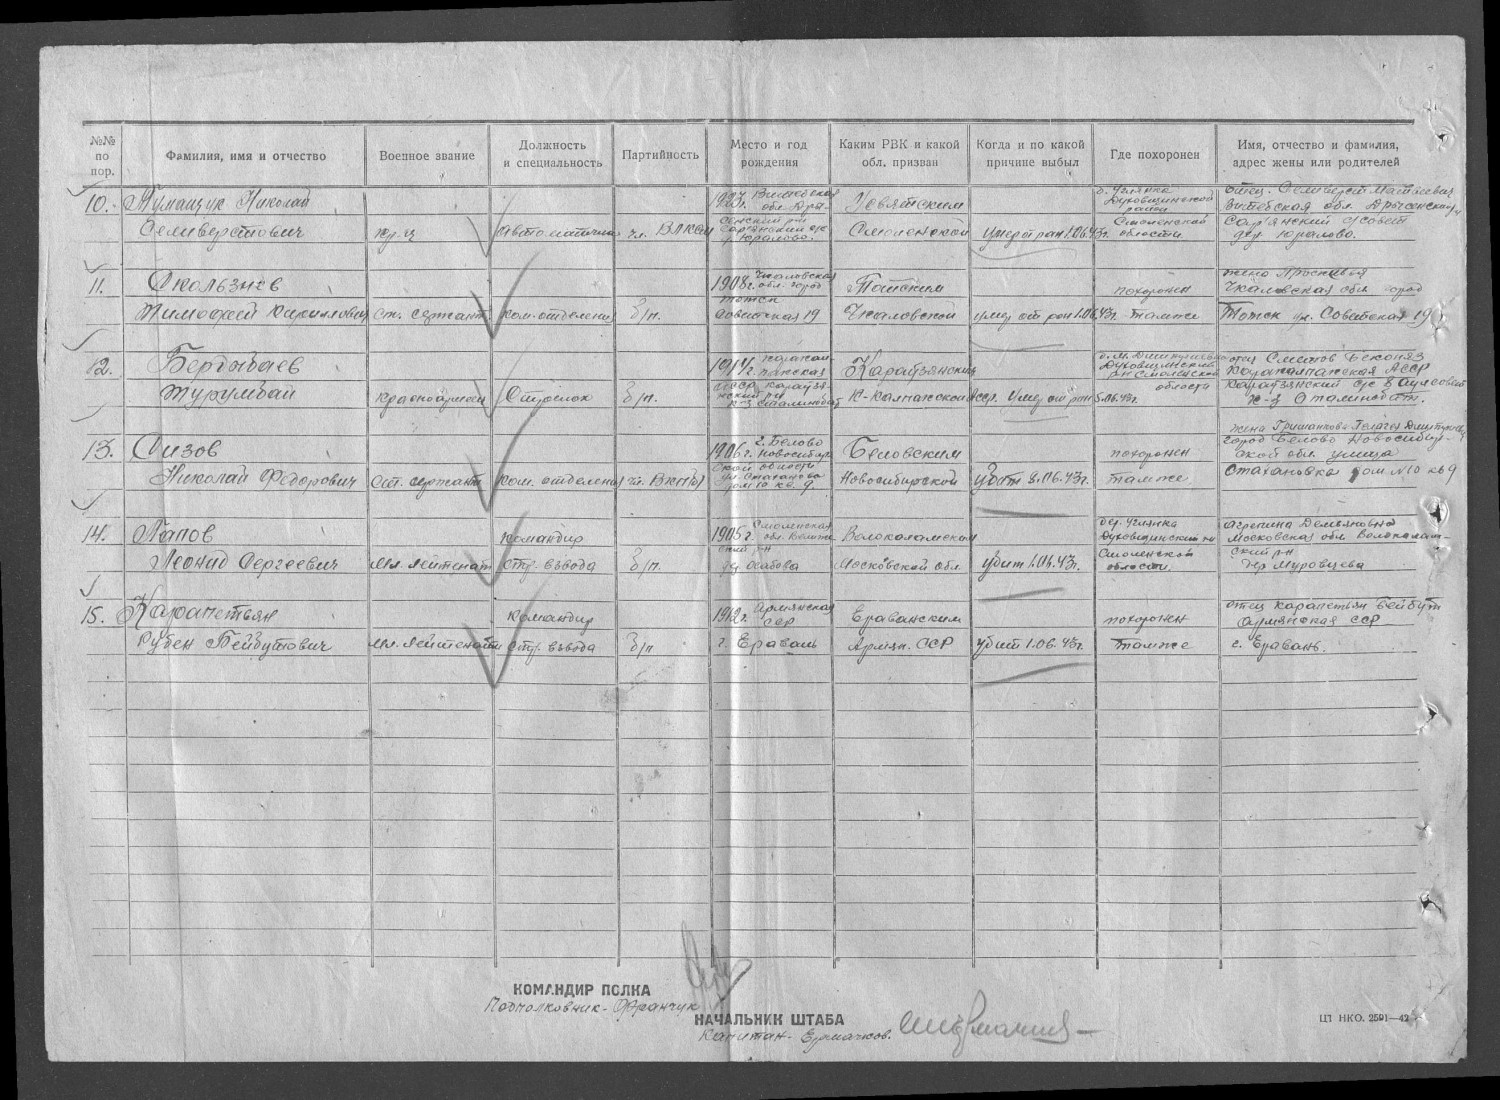 №№ по пор.
Фамилия, имя и отчество
Военное звание
Должность и специальность
Партийность
Место и год рождения
Каким РВК и какой обл. призван
Когда и по какой причине выбыл
Где похоронен
Имя, отчество и фамилия, адрес жены или родителей
10. Николай
Селиверстович кр-ц чл. ВЛКСМ
1923г. Витебская обл.
Смоленской умер от ран 1.06.43г.
д. Углянка Духовщинской район Смоленской области.
отец. Селиверст Матвеевич
Витебская обл.
с/совет
дер Юралово.
11. Скользнев
Тимофей Кириллович ст. сержант ком. отделения б/п.
1908г. Чкаловская обл. город Тотск Советская 19
Чкаловской умер от ран 1.06.43г.
похоронен там же
Чкаловская обл. город
Тотск ул. Советская 19
12. Бердибаев
Турумбай красноармеец Стрелок б/п.
1914г.
Караузякским
К-Калпакской АССР. Умер от ран 5.06.43г.
Духовщинский р-н Смоленской области
Каракалпакская АССР
Караузякский с/с 8 Аулсовет
к-з Сталинобад.
13. Сизов
Николай Федорович ст. сержант ком. отделения чл. ВКП(б)
1906г. г. Белово Новосибирской области ул. Стаханова дом 10 кв. 9.
Беловским
Новосибирской Убит 8.06.43г.
похоронен там же
жена Гришанкова Пелагея
город Белово Новосибирской обл. улица
Стахановка дом №10 кв 9
14. Лапов
Леонид Сергеевич мл. лейтенант командир стр. взвода б/п.
1905г. Смоленская обл.
Волоколамским
Московской обл. убит 1.06.43г.
дер. Углянка Духовщинский рн Смоленской области.
Агрепина Демьяновна
Московская обл Волоколамский р-н
дер Муровцева
15. Карапетьян
Рубен Бейбутович мл. лейтенант командир стр. взвода б/п
1912г. Армянская ССР
г. Еравань
Ераванским
Армян. ССР убит 1.06.43г.
похоронен там же
отец Карапетьян Бейбут
Армянская ССР
г. Еравань.
КОМАНДИР ПОЛКА
Подполковник- Франчук
НАЧАЛЬНИК ШТАБА
Капитан- Ермачков.
ЦТ НКО. 2591—42